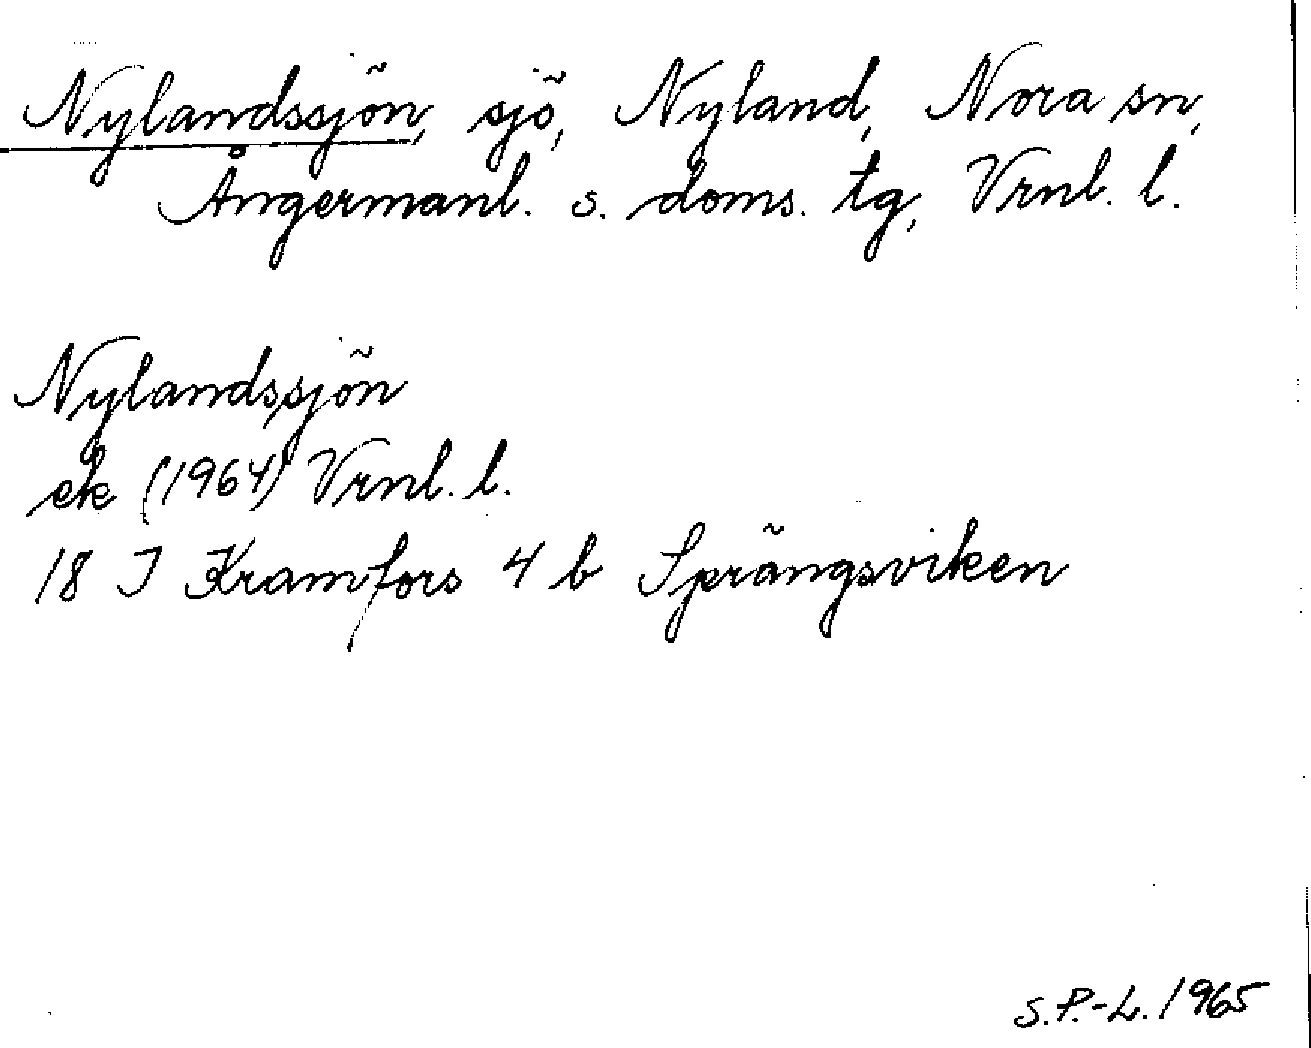 Nylandssjön, sjö, Nyland, Nora sn,
Ångermanl. s. doms. tg, Vrnl. l.
Nylandssjön
ek (1964) Vrnl. l.
18 I Kramfors 4 b Sprängsviken
S.P.-L. 1965